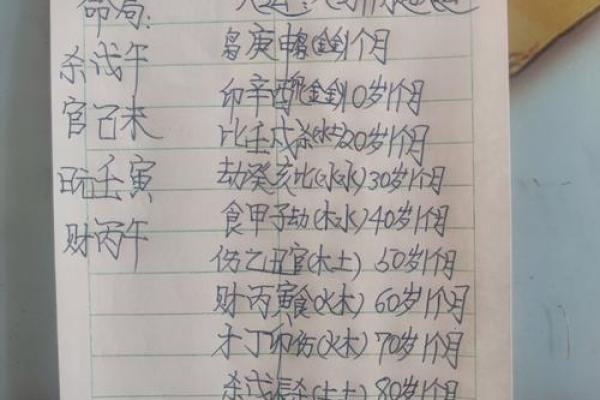 命局:
杀戊午
官己未
日元壬寅
财丙午
枭庚申枭(金金)1个月
印辛酉(金金)10岁1个月
比壬戌杀(水土)20岁1个月
劫癸亥比(水水)30岁1个月
食甲子劫(木水)40岁1个月
伤乙丑官(木土) 50岁1个月
财丙寅食(火木) 60岁1个月
才丁卯伤(火木) 70岁1个月
杀戊辰杀(土土) 80岁1个月